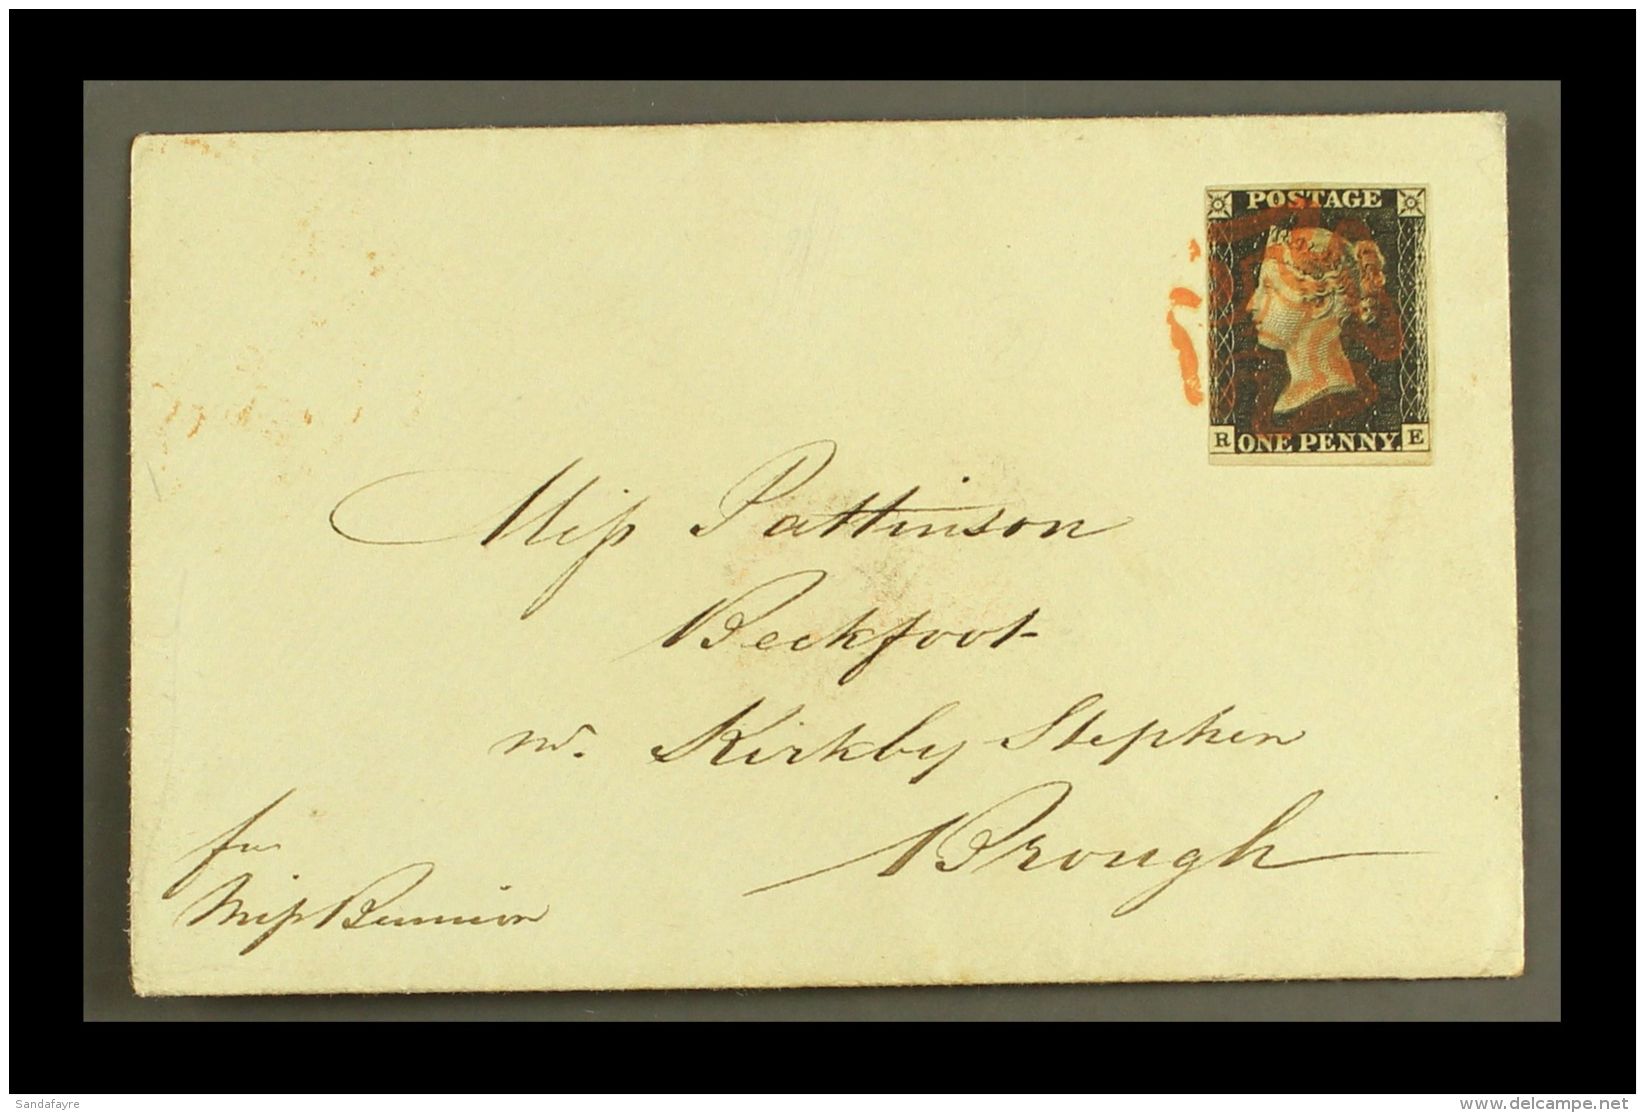 POSTAGE
R ONE PENNY. E
Miſs Pattinson
Beckfoot
nr. Kirkby Stephen
Brough
for
Miſs
Sandafayre
www.delcampe.net